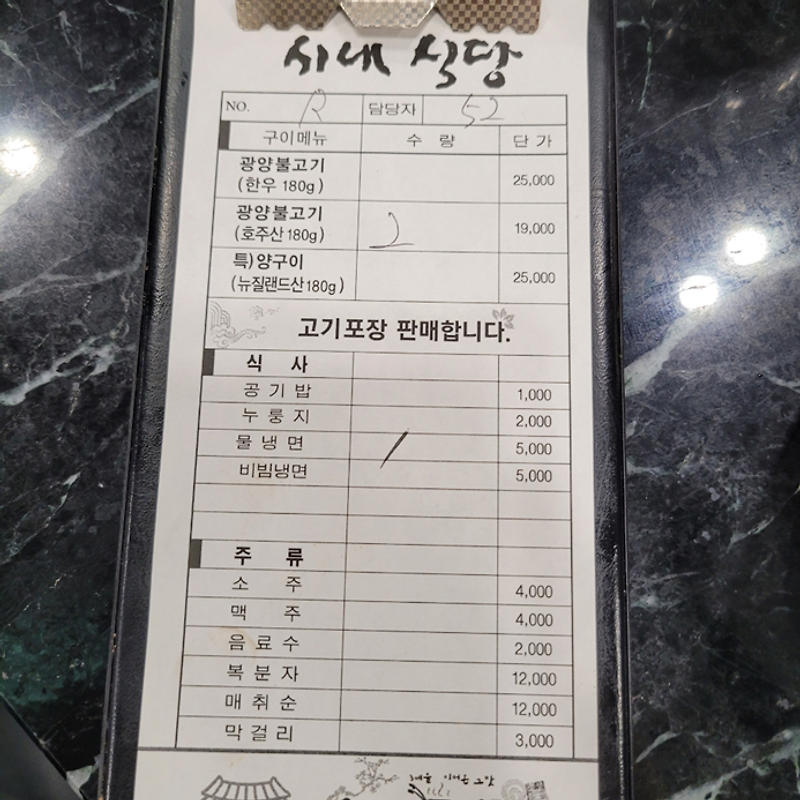 시내 식당
NO. R 담당자 52
구이메뉴 수 량 단 가
광양불고기
(한우 180g) 25,000
광양불고기
(호주산 180g) 2 19,000
특)양구이
(뉴질랜드산180g) 25,000
고기포장 판매합니다.
식 사
공 기 밥 1,000
누 룽 지 2,000
물 냉 면 / 5,000
비빔냉면 5,000
주 류
소 주 4,000
맥 주 4,000
음 료 수 2,000
복 분 자 12,000
매 취 순 12,000
막 걸 리 3,000